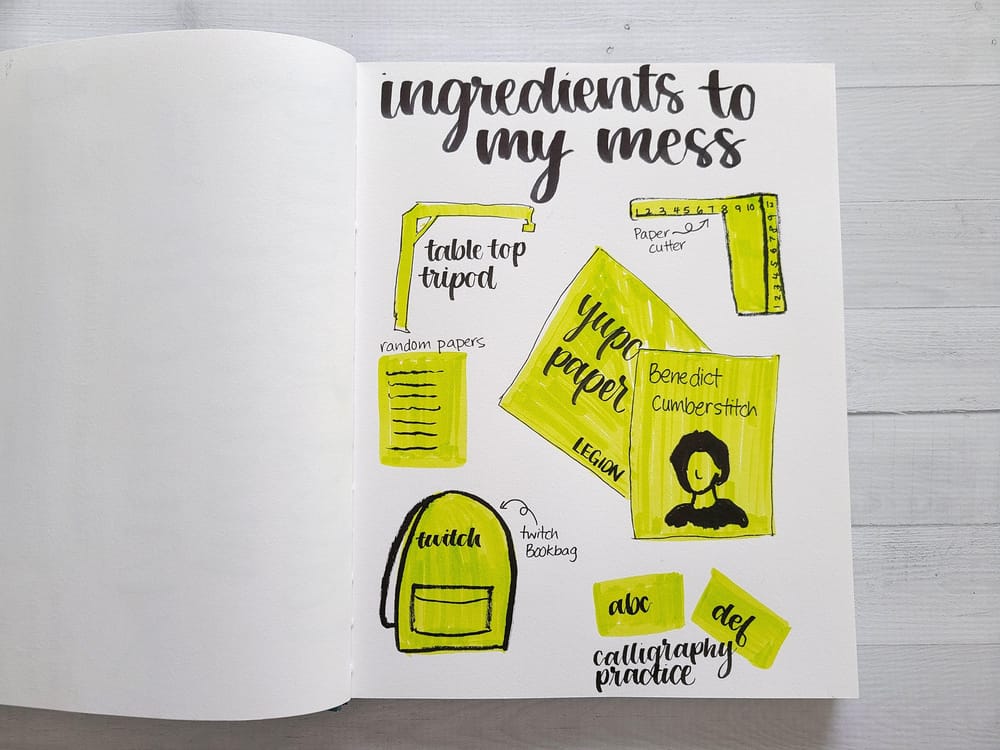 ingredients to
my mess
table top
tripod
1 2 3 4 5 6 7 8 9 10 12
1 2 3 4 5 6 7 8 9
Paper
cutter
random papers
yupo
paper
LEGION
Benedict
Cumberstitch
twitch
twitch
Bookbag
abc
def
calligraphy
practice